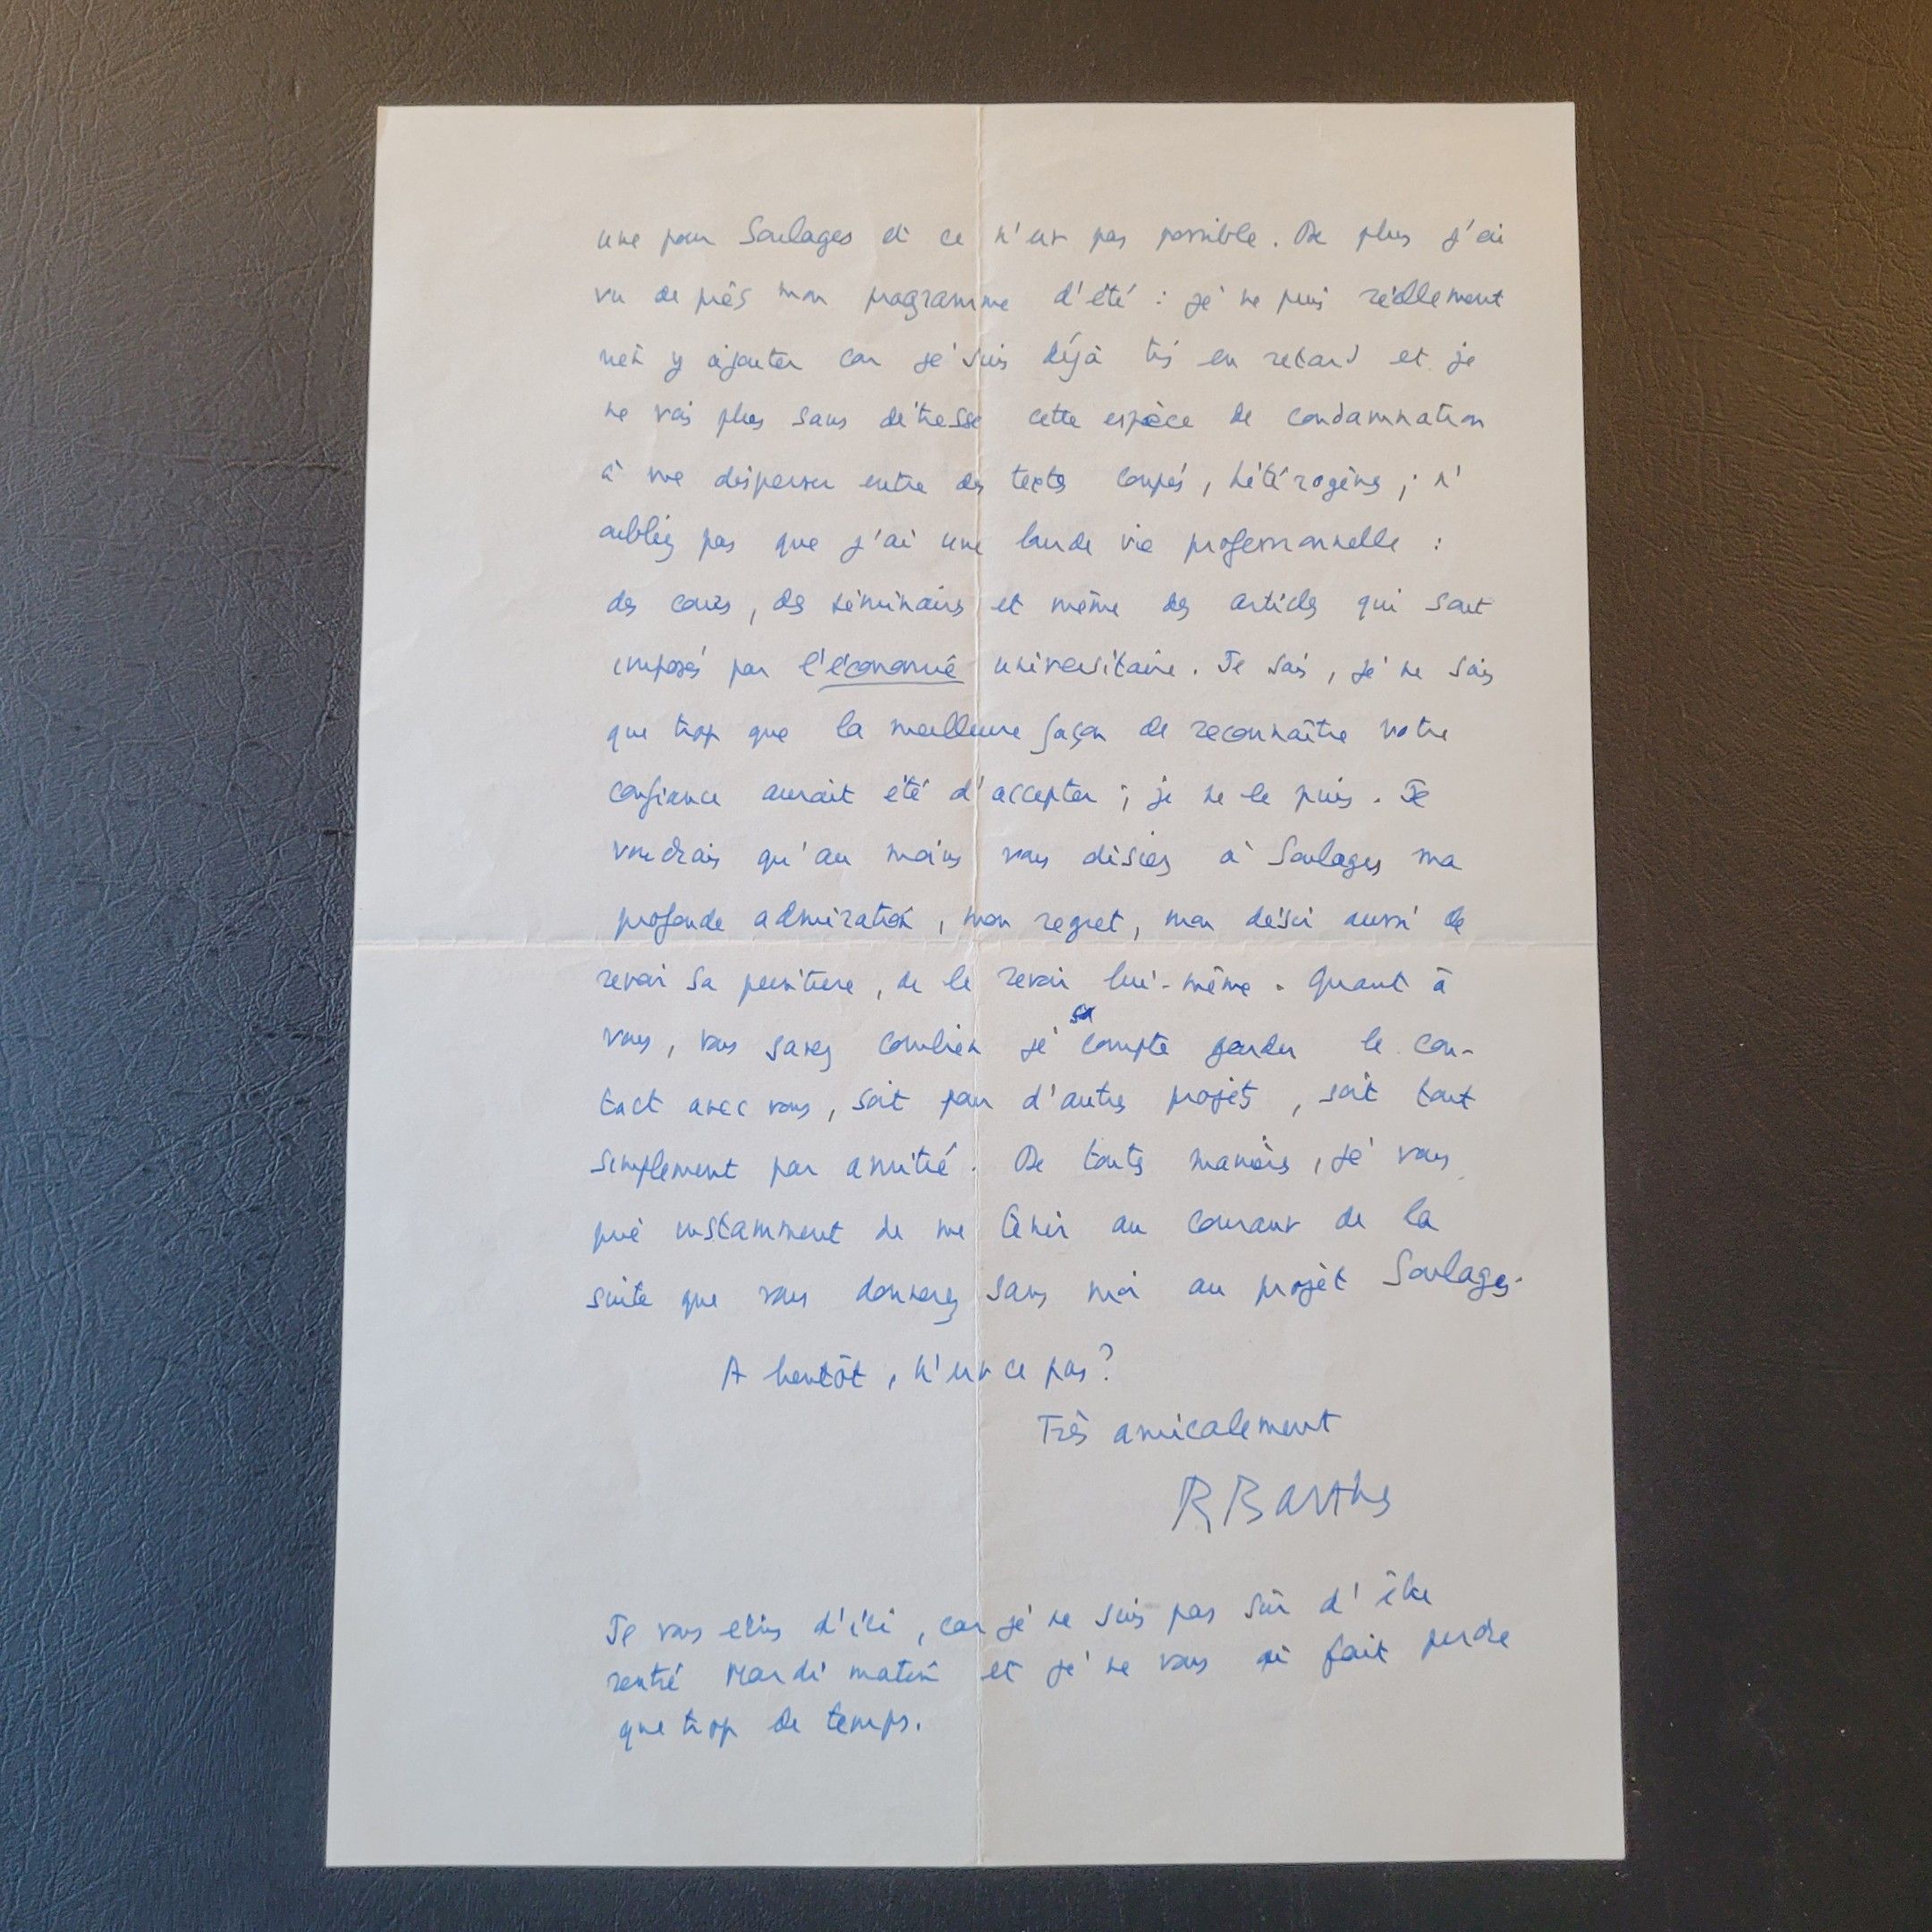 une pour Soulages et ce n'est pas possible. De plus j'ai
vu de près mon programme d'été : je ne puis réellement
rien y ajouter car je suis déjà très en retard et je
ne vois plus sans détresse cette espèce de condamnation
à me disperser entre des textes coupés, hétérogènes ; n'
oubliez pas que j'ai une lourde vie professionnelle :
des cours, des séminaires et même des articles qui sont
imposés par l'économie universitaire. Je sais, je ne sais
que trop que la meilleure façon de reconnaître votre
confiance aurait été d'accepter ; je ne le puis. Je
voudrais qu'au moins vous disiez à Soulages ma
profonde admiration, mon regret, mon désir aussi de
revoir sa peinture, de le revoir lui-même. Quant à
vous, vous savez combien je compte garder le con-
tact avec vous, soit pour d'autres projets, soit tout
simplement par amitié. De toutes manières, je vous
prie instamment de me tenir au courant de la
suite que vous donnerez sans moi au projet Soulages.
A bientôt, n'est ce pas ?
Très amicalement
R Barthes
Je vous écris d'ici, car je ne suis pas sûr d'être
rentré Mardi matin et je ne vous ai fait perdre
que trop de temps.